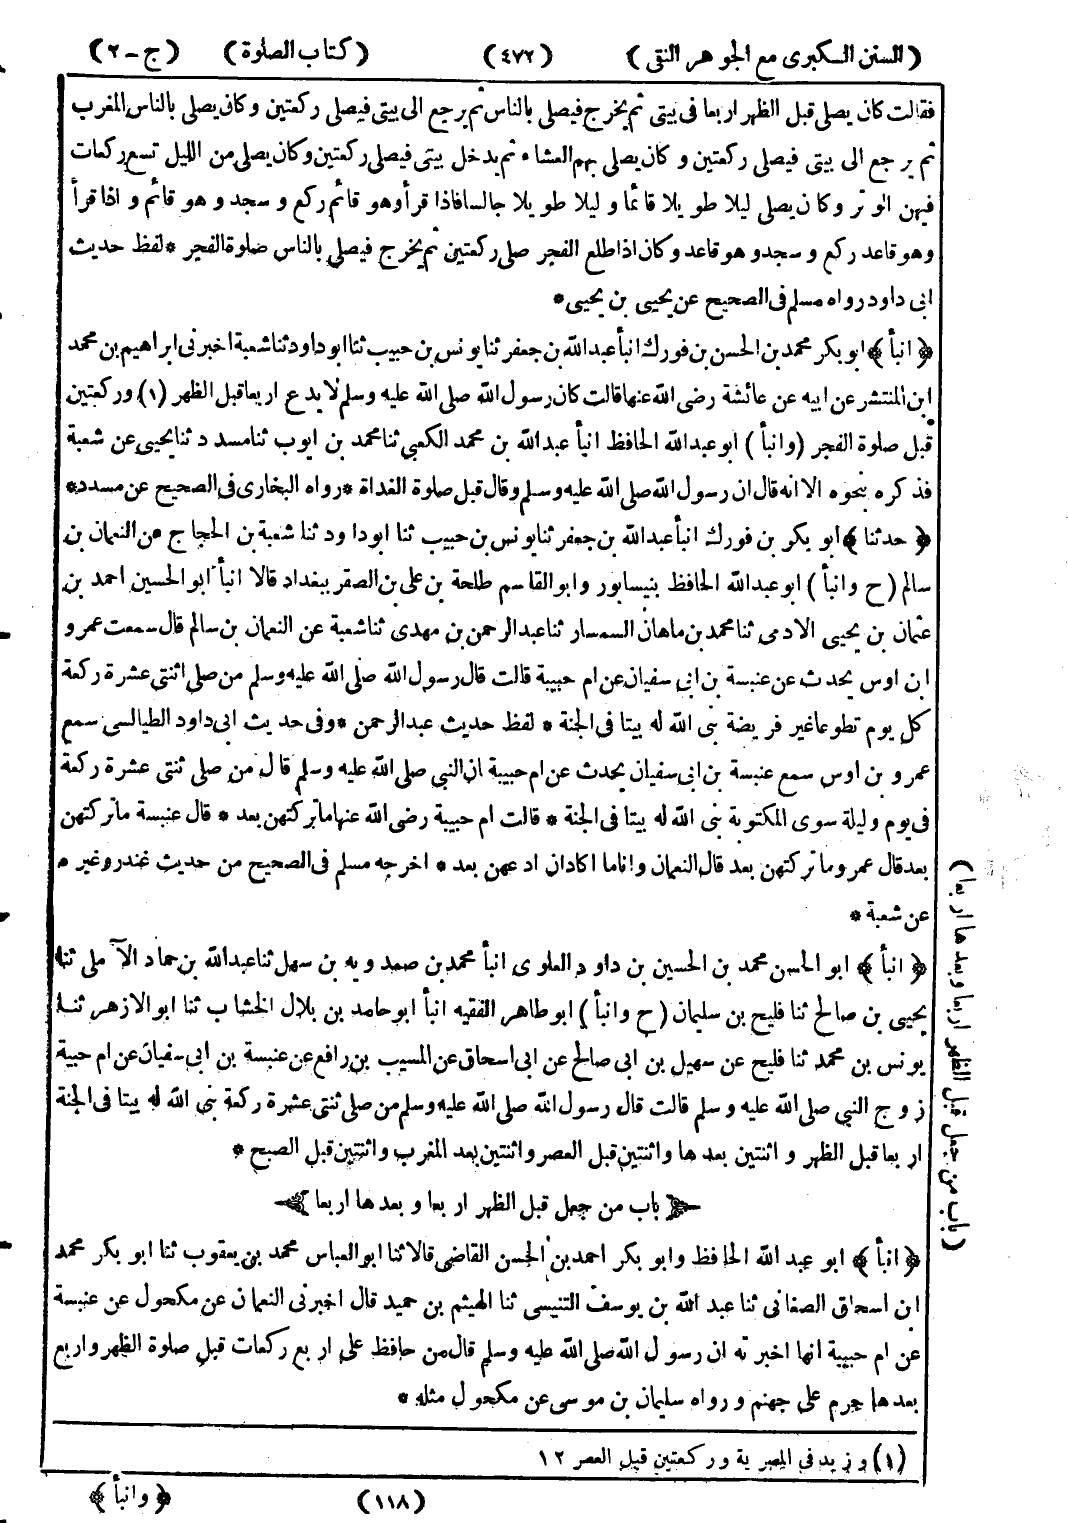 (السنن الكبرى مع الجوهر النقى) (٤٧٢) (كتاب الصلوة) (ج-٢)
فقالت كان يصلى قبل الظهر اربعا فى بيتى ثم يخرج فيصلى بالناس ثم يرجع الى بيتى فيصلى ركعتين وكان يصلى بالناس المغرب
ثم يرجع الى بيتى فيصلى ركعتين وكان يصلى بهم العشاء ثم يدخل بيتى فيصلى ركعتين وكان يصلى من الليل تسع ركعات
فيهن الوتر وكان يصلى ليلا طويلا قائما وليلا طويلا جالسا فاذا قرأ وهو قائم ركع وسجد وهو قائم واذا قرأ
وهو قاعد ركع وسجد وهو قاعد وكان اذا طلع الفجر صلى ركعتين ثم يخرج فيصلى بالناس صلوة الفجر * لفظ حديث
ابى داود رواه مسلم فى الصحيح عن يحيى بن يحيى *
﴿انبأ﴾ ابو بكر محمد بن الحسن بن فورك انبأ عبدالله بن جعفر ثنا يونس بن حبيب ثنا ابو داود ثنا شعبة اخبرنى ابراهيم بن محمد
ابن المنتشر عن ابيه عن عائشة رضى الله عنها قالت كان رسول الله صلى الله عليه وسلم لا يدع اربعا قبل الظهر (١) وركعتين
قبل صلوة الفجر (وانبأ) ابو عبدالله الحافظ انبأ عبدالله بن محمد الكعبي ثنا محمد بن ايوب ثنا مسدد ثنا يحيى عن شعبة
فذكره بنحوه الا انه قال ان رسول الله صلى الله عليه وسلم وقال قبل صلوة الغداة * رواه البخارى فى الصحيح عن مسدد *
﴿حدثنا﴾ ابو بكر بن فورك انبأ عبدالله بن جعفر ثنا يونس بن حبيب ثنا ابو داود ثنا شعبة بن الحجاج عن النعمان بن
سالم (ح وانبأ) ابو عبدالله الحافظ بنيسابور وابو القاسم طلحة بن على بن الصقر ببغداد قالا انبأ ابو الحسين احمد بن
عثمان بن يحيى الادمى ثنا محمد بن ماهان السمسار ثنا عبدالرحمن بن مهدى ثنا شعبة عن النعمان بن سالم قال سمعت عمرو
ابن اوس يحدث عن عنبسة بن ابى سفيان عن ام حبيبة قالت قال رسول الله صلى الله عليه وسلم من صلى اثنتى عشرة ركعة
كل يوم تطوعا غير فريضة بنى الله له بيتا فى الجنة * لفظ حديث عبدالرحمن * وفى حديث ابى داود الطيالسى سمع
عمرو بن اوس سمع عنبسة بن ابى سفيان يحدث عن ام حبيبة ان النبى صلى الله عليه وسلم قال من صلى ثنتى عشرة ركعة
فى يوم وليلة سوى المكتوبة بنى الله له بيتا فى الجنة * قالت ام حبيبة رضى الله عنها ماتركتهن بعد * قال عنبسة ماتركتهن
بعد قال عمرو ماتركتهن بعد قال النعمان وانا ما اكاد ان ادعهن بعد * اخرجه مسلم فى الصحيح من حديث غندر وغيره
عن شعبة *
﴿انبأ﴾ ابو الحسن محمد بن الحسين بن داود العلوى انبأ محمد بن حمدويه بن سهل ثنا عبدالله بن حماد الآملى ثنا
يحيى بن صالح ثنا فليح بن سليمان (ح وانبأ) ابو طاهر الفقيه انبأ ابو حامد بن بلال الخشاب ثنا ابو الازهر ثنا
يونس بن محمد ثنا فليح عن سهيل بن ابى صالح عن ابى اسحاق عن المسيب بن رافع عن عنبسة بن ابى سفيان عن ام حبيبة
زوج النبى صلى الله عليه وسلم قالت قال رسول الله صلى الله عليه وسلم من صلى ثنتى عشرة ركعة بنى الله له بيتا فى الجنة
اربعا قبل الظهر واثنتين بعدها واثنتين قبل العصر واثنتين بعد المغرب واثنتين قبل الصبح *
﴿باب من جعل قبل الظهر اربعا وبعدها اربعا﴾
﴿انبأ﴾ ابو عبد الله الحافظ وابو بكر احمد بن الحسن القاضى قالا ثنا ابو العباس محمد بن يعقوب ثنا ابو بكر محمد
ابن اسحاق الصغانى ثنا عبد الله بن يوسف التنيسى ثنا الهيثم بن حميد قال اخبرنى النعمان عن مكحول عن عنبسة
عن ام حبيبة انها اخبرته ان رسول الله صلى الله عليه وسلم قال من حافظ على اربع ركعات قبل صلوة الظهر واربع
بعدها حرم على جهنم ورواه سليمان بن موسى عن مكحول مثله *
(باب من جعل قبل الظهر اربعا وبعدها اربعا)
(١) وزيد فى المصرية وركعتين قبل العصر ١٢
(١١٨) ﴿وانبأ﴾